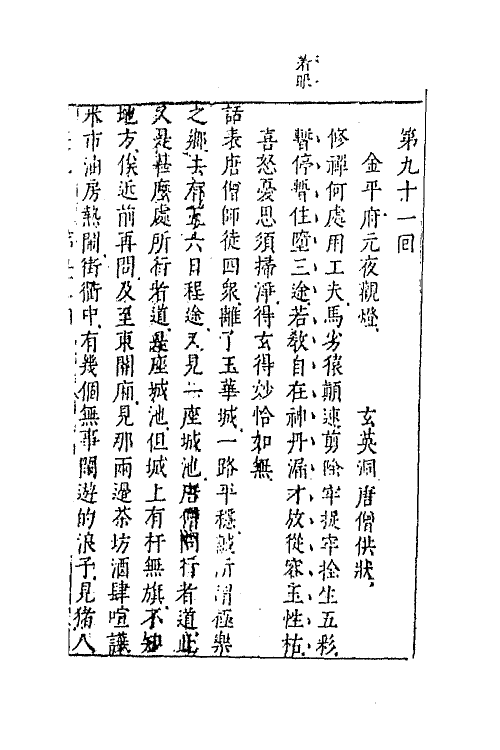 着眼
第九十一回
金平府元夜觀燈　玄英洞唐僧供狀
修禪何處用工夫馬劣猿顛速剪除牢捉牢拴生五彩
暫停暫住墮三途若教自在神丹漏才放從容玉性枯
喜怒憂思須掃淨得玄得妙恰如無
話表唐僧師徒四衆離了玉華城一路平穩誠所謂極樂
之鄉去有五六日程途又見一座城池唐僧問行者道此
又是甚麼處所行者道是座城池但城上有杆無旗不知
地方俟近前再問及至東關廂見那兩邊茶坊酒肆喧譁
米市油房熱鬧街衢中有幾個無事閑遊的浪子見猪八